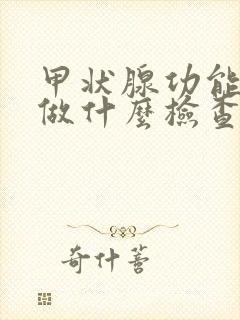 甲状腺功能
做什麼檢查
奇什蒈